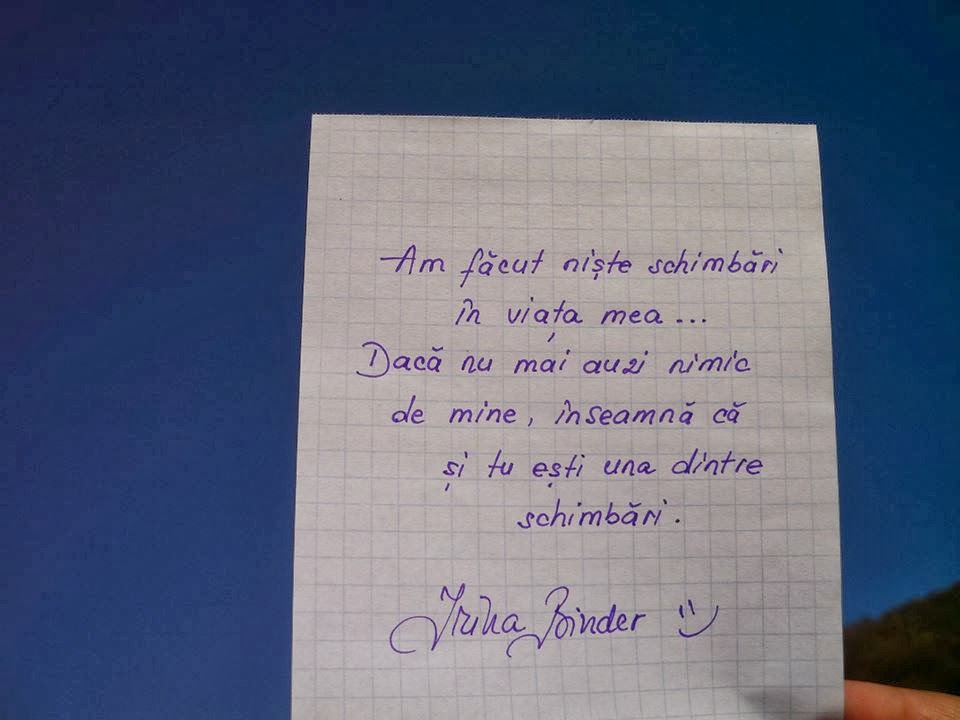 Am făcut niște schimbări
în viața mea...
Dacă nu mai auzi nimic
de mine, înseamnă că
și tu ești una dintre
schimbări.
Irina Binder :)